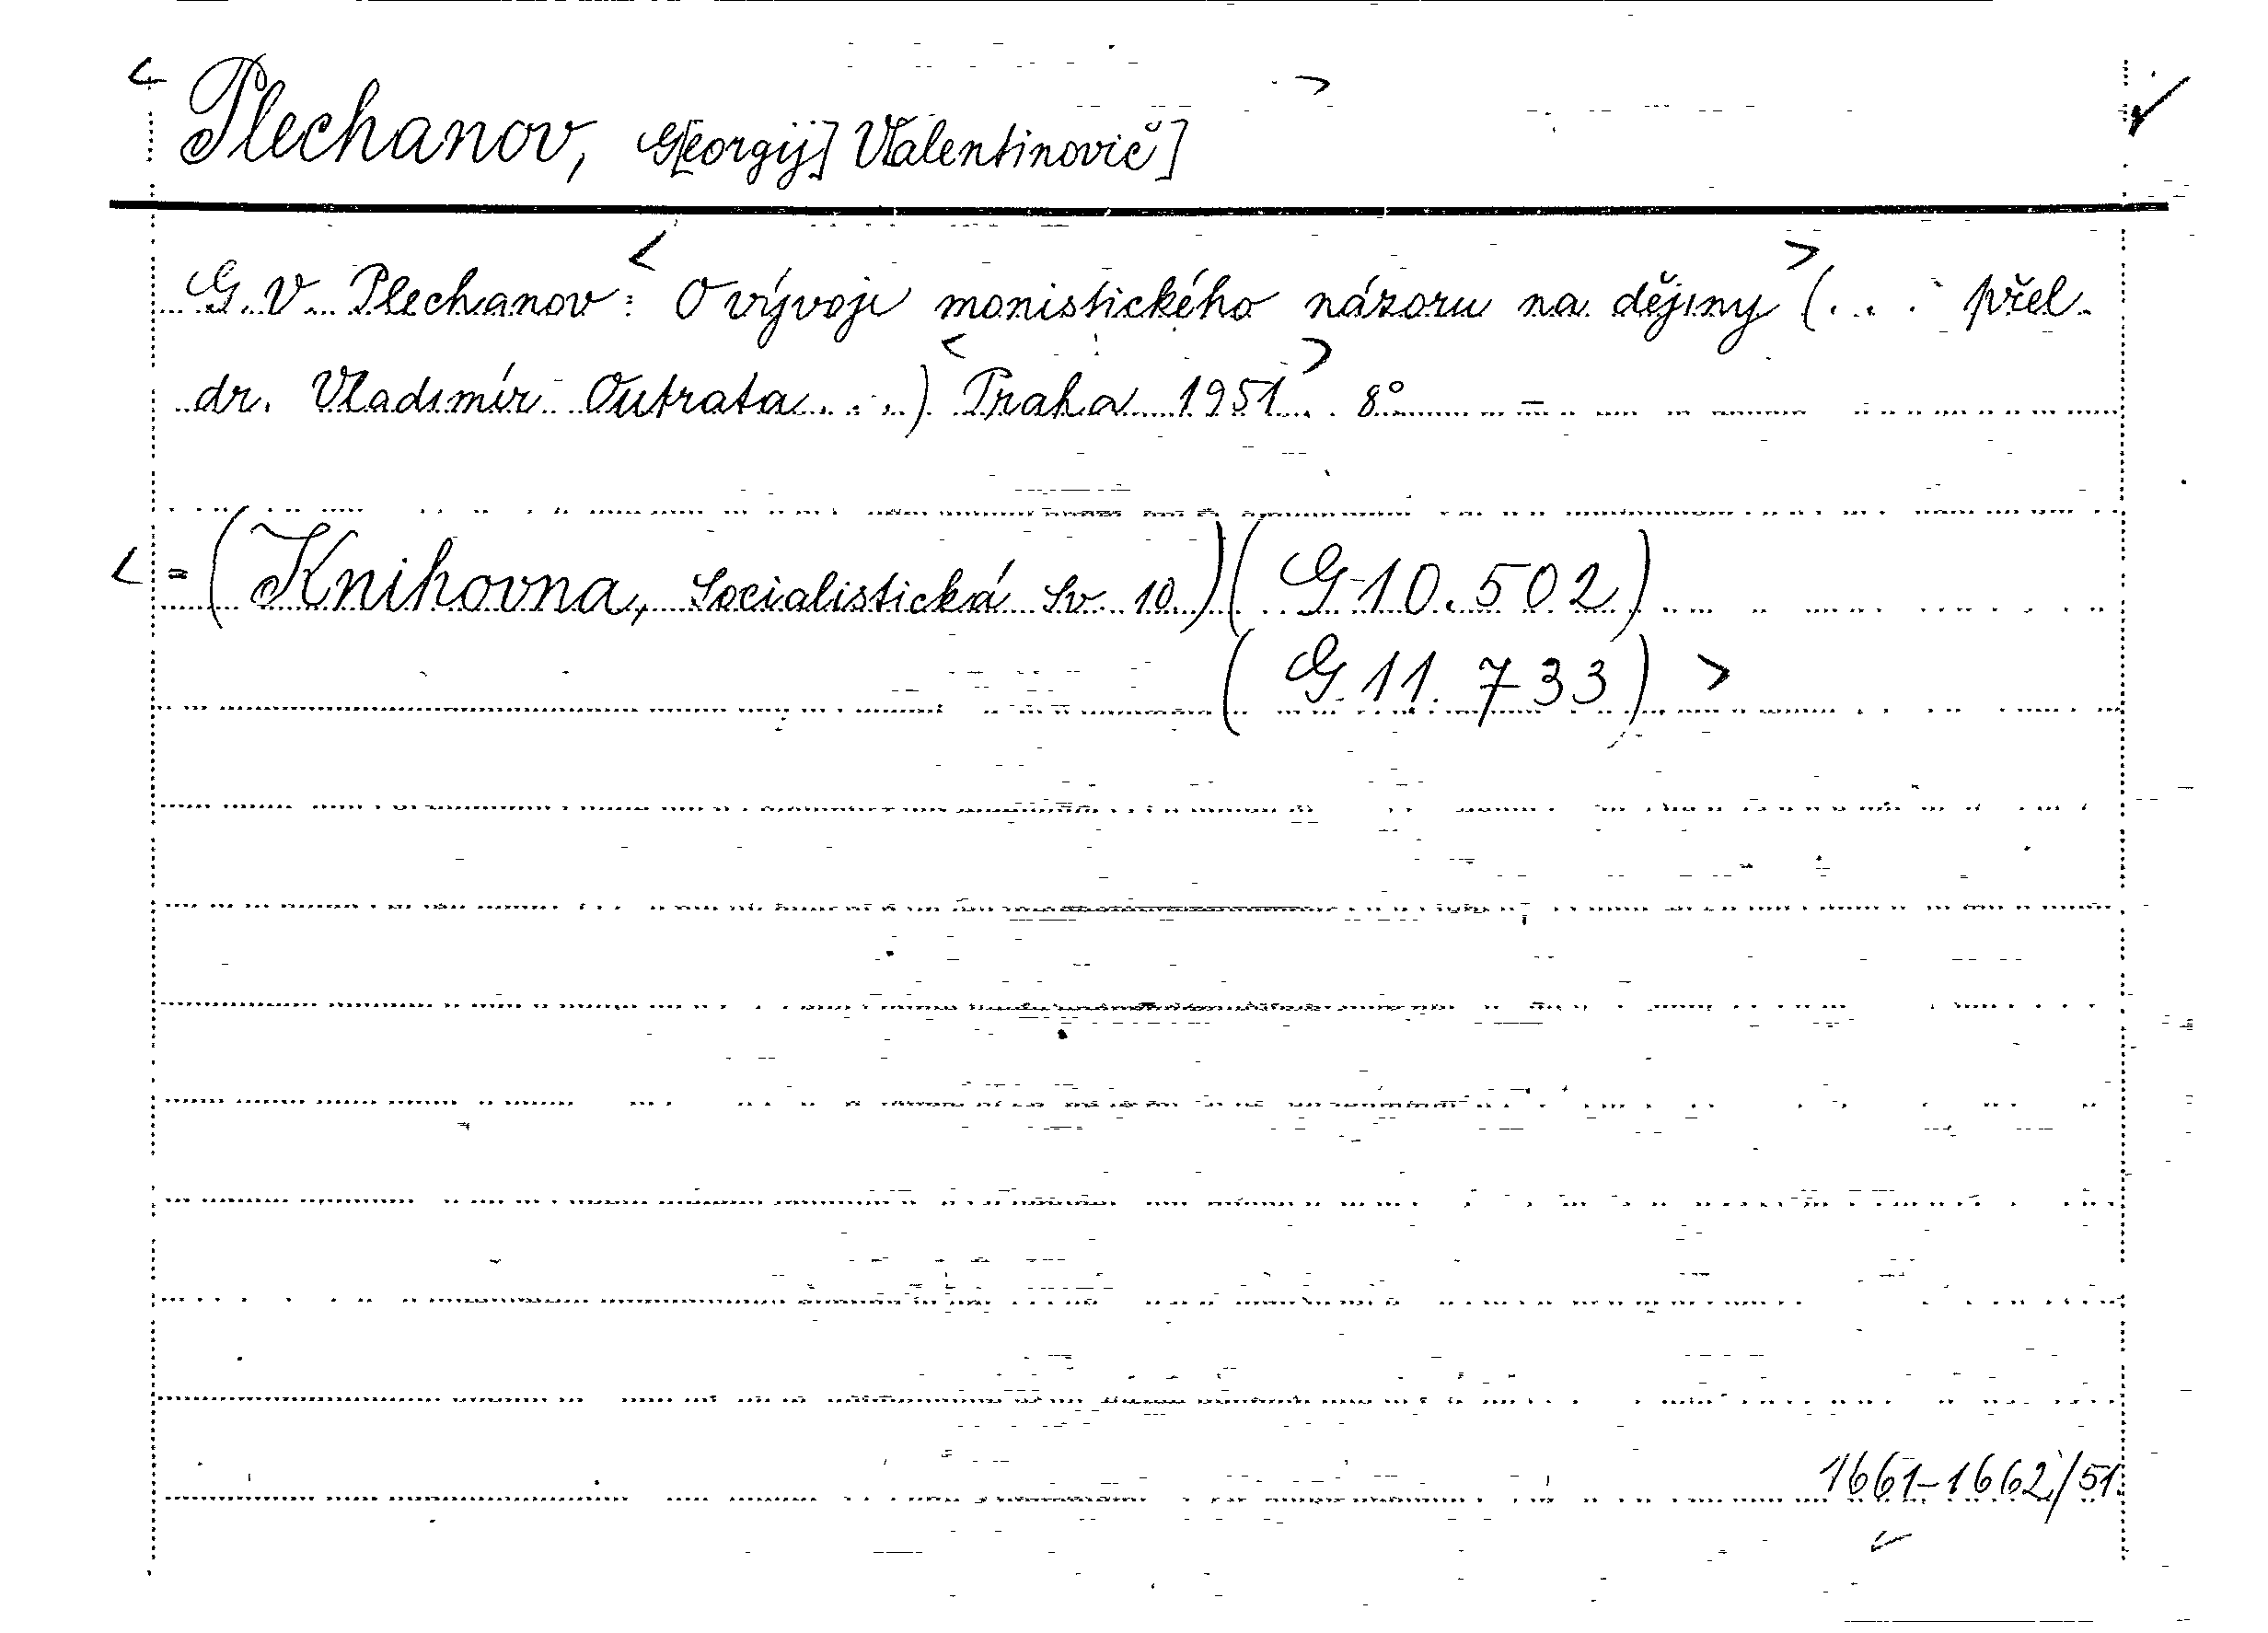 < Plechanov, G[eorgij] V[alentinovič] > ✓
G. V. Plechanov: <O vývoji monistického názoru na dějiny> (... přel.
dr. Vladimír Outrata ...) <Praha 1951>. 8° –
< = (Knihovna, Socialistická Sv. 10.) (G 10.502)
(G 11.733) >
1661-1662/51.